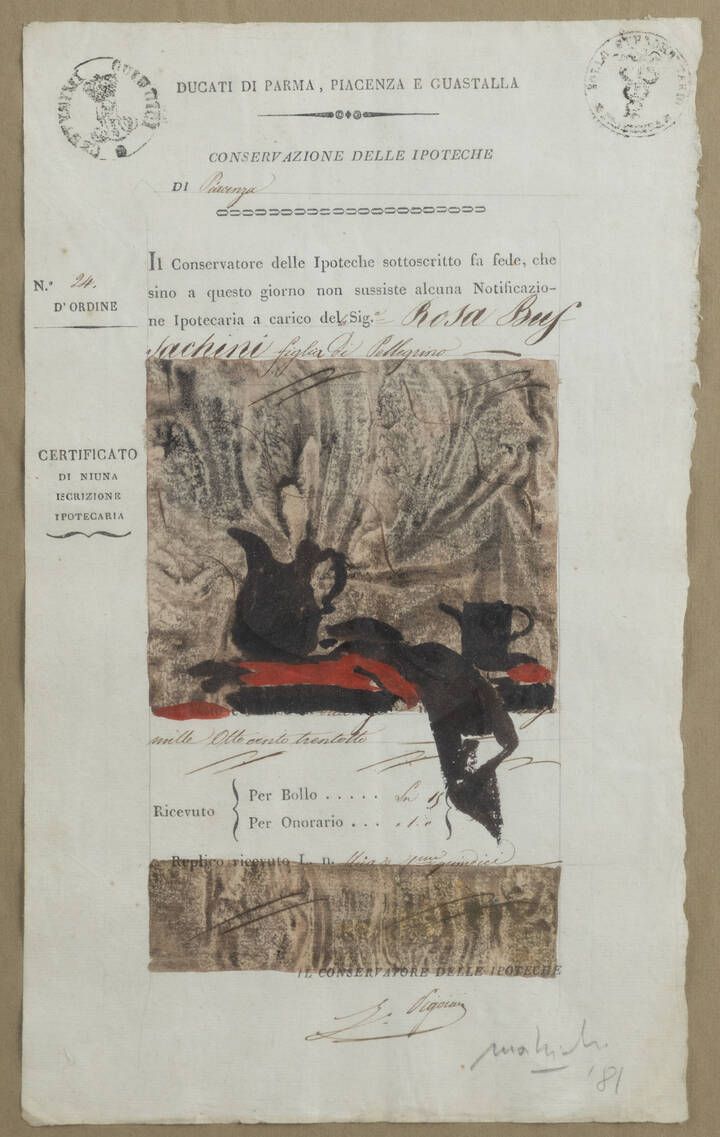 DUCATI DI PARMA, PIACENZA E GUASTALLA
CONSERVAZIONE DELLE IPOTECHE
DI Piacenza
N.º 24.
D'ORDINE
Il Conservatore delle Ipoteche sottoscritto fa fede, che
sino a questo giorno non sussiste alcuna Notificazio-
ne Ipotecaria a carico del Sig.ª Rosa Bus
sachini figlia di Pellegrino
CERTIFICATO
DI NIUNA
ISCRIZIONE
IPOTECARIA
mille Otto cento trentotto
Ricevuto
Per Bollo . . . . . 15
Per Onorario . . .
Replico ricevuto L. n.
IL CONSERVATORE DELLE IPOTECHE
'81